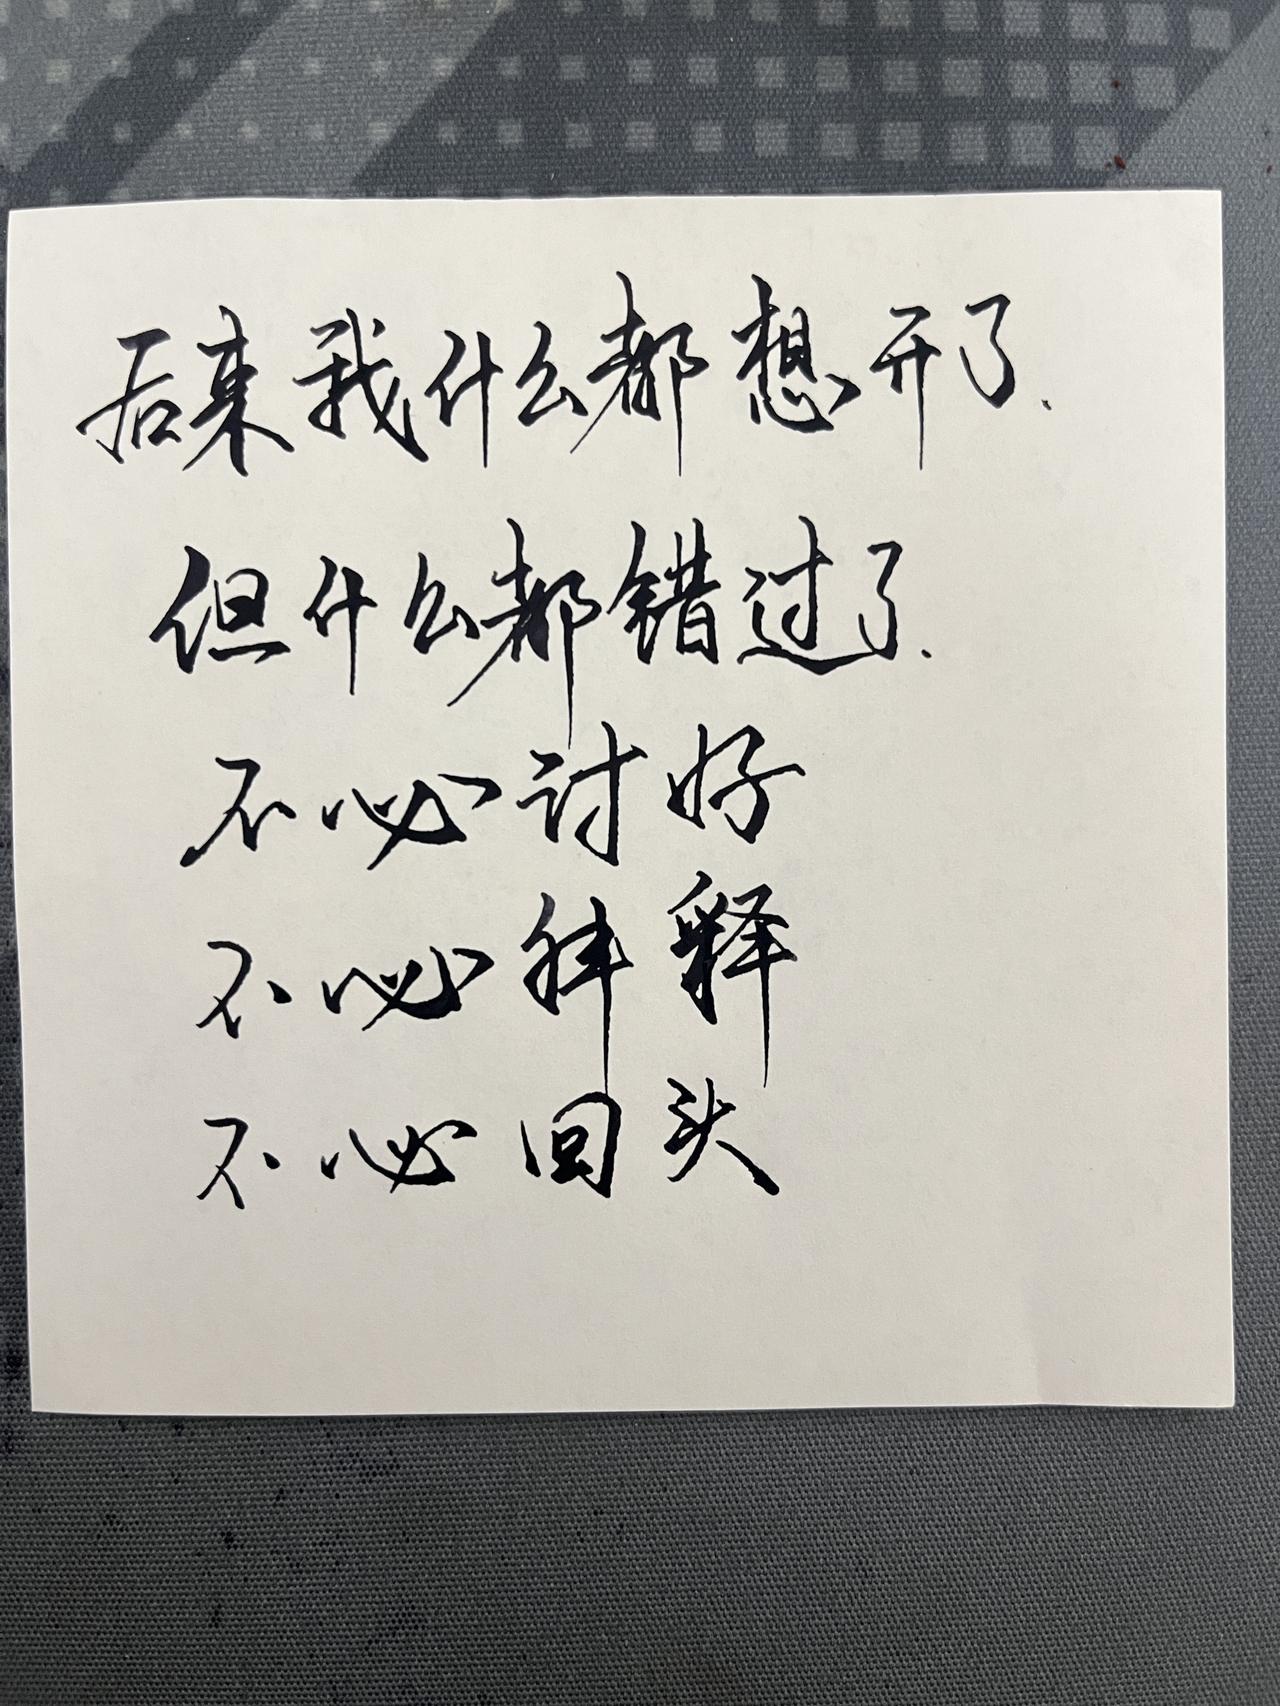 后来我什么都想开了.
但什么都错过了.
不必讨好
不必解释
不必回头